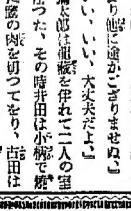 り他に途がござりませぬ、』
い、いい、大丈夫だよ。』
太郎は龍蔵を伴れて二人の室
つた、その時井田は小柄で焼
た豚の肉を切つてをり、古田は